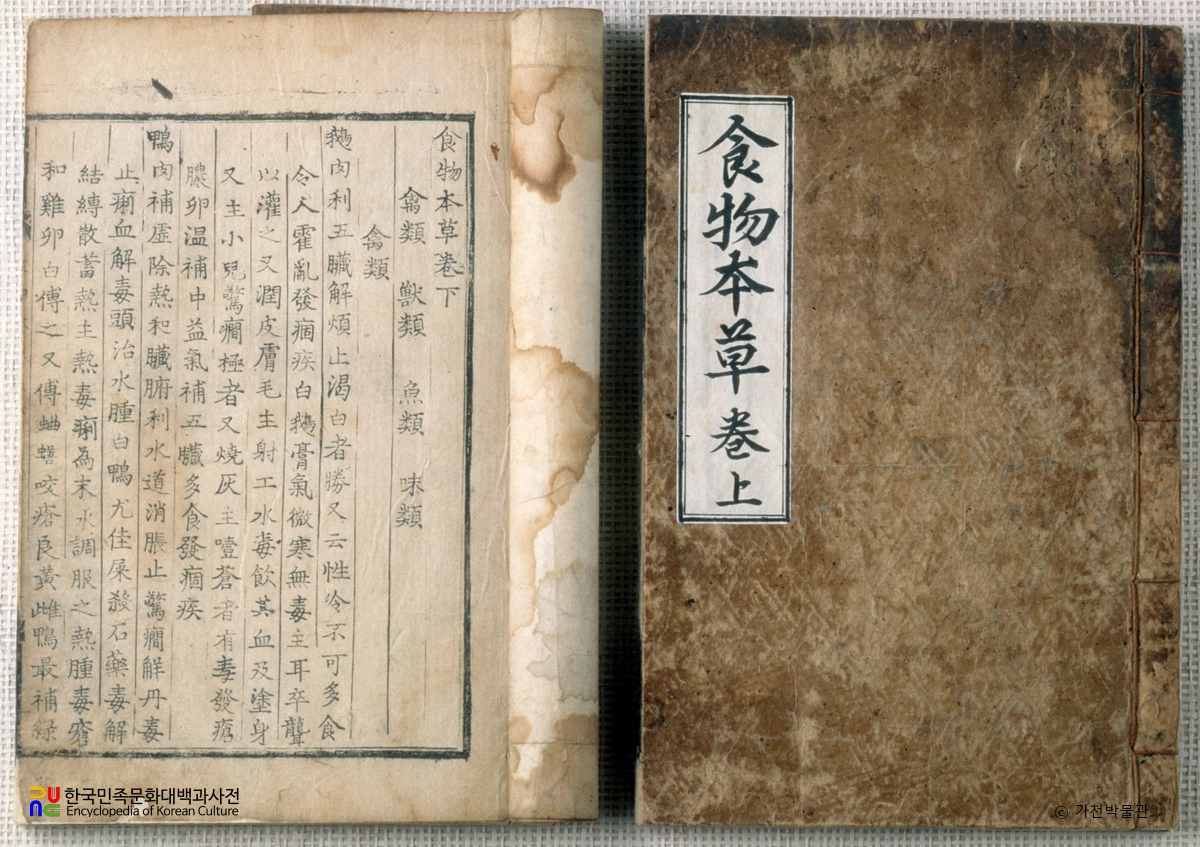 食物本草卷下
禽類 獸類 魚類 味類
禽類
鵝肉利五臟解煩止渴白者勝又云性冷不可多食
令人霍亂發痼疾白鵝膏氣微寒無毒主耳卒聾
以灌之又潤皮膚毛主射工水毒飲其血及塗身
又主小兒驚癎極者又燒灰主噎蒼者有毒發瘡
膿卵温補中益氣補五臟多食發痼疾
鴨肉補虛除熱和臟腑利水道消脹止驚癎解丹毒
止痢血解毒頭治水腫白鴨尤佳屎殺石藥毒解
結縛散蓄熱主熱毒痢為末水調服之熱腫毒瘡
和雞卵白傅之又傅蚰蟮咬瘡良黃雌鴨最補綠
食物本草 卷上
한국민족문화대백과사전
Encyclopedia of Korean Culture
© 가천박물관